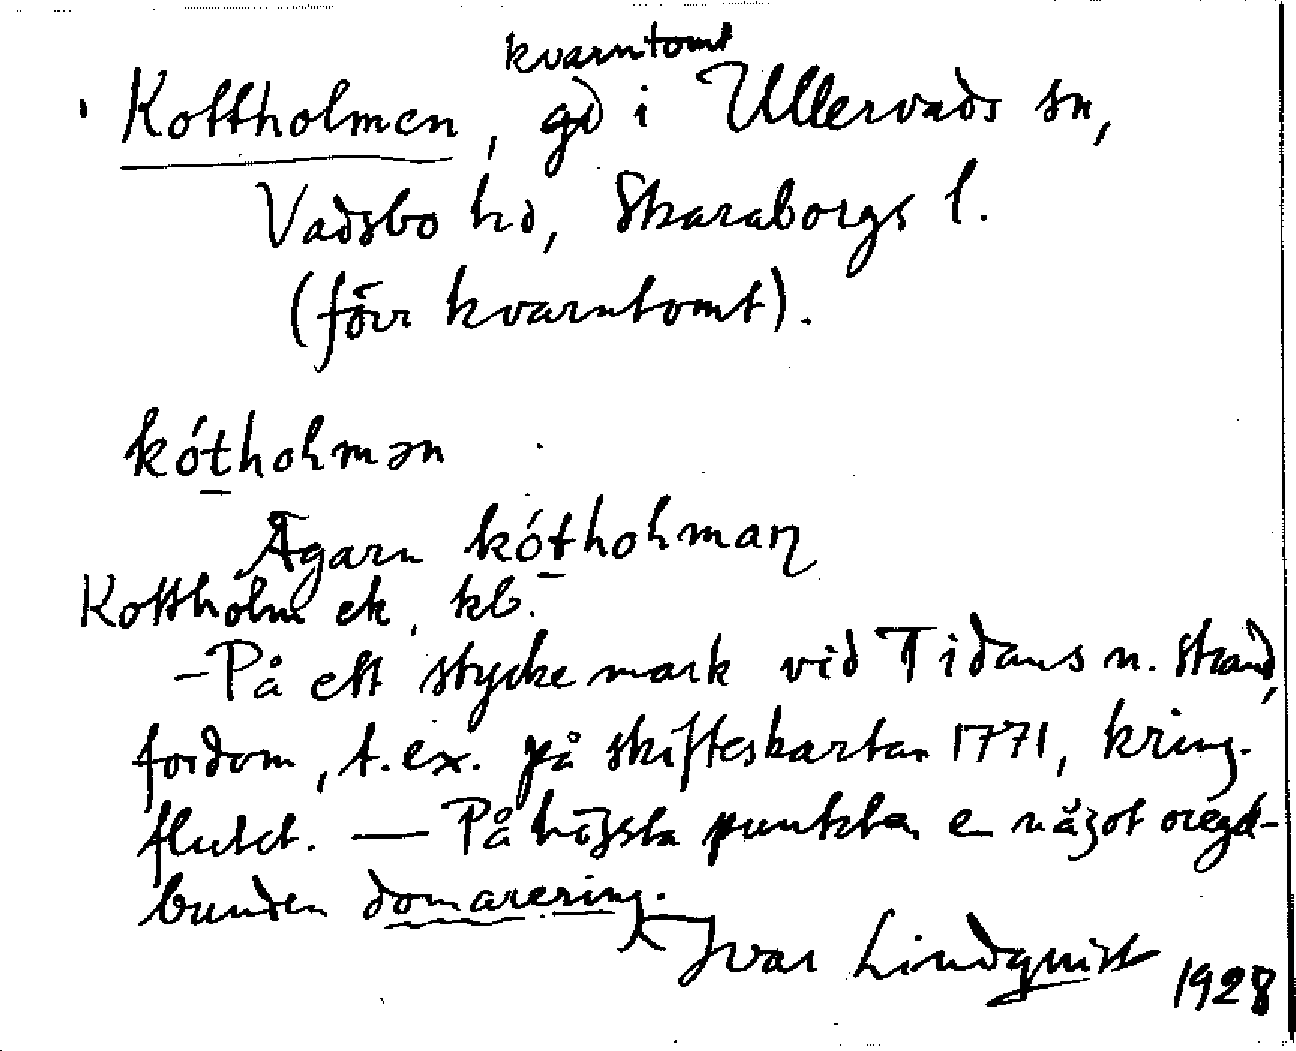 kvarntomt
Kottholmen, gd i Ullervads sn,
Vadsbo hd, Skaraborgs l.
(förr kvarntomt).
kótholmən
Ägarn kótholman
Kottholm ek, kb.
- På ett stycke mark vid Tidans n. strand,
fordom, t.ex. på skifteskartan 1771, kring-
flutet. — På högsta punkten en något oregel-
bunden domarering.
Ivar Lindquist 1928